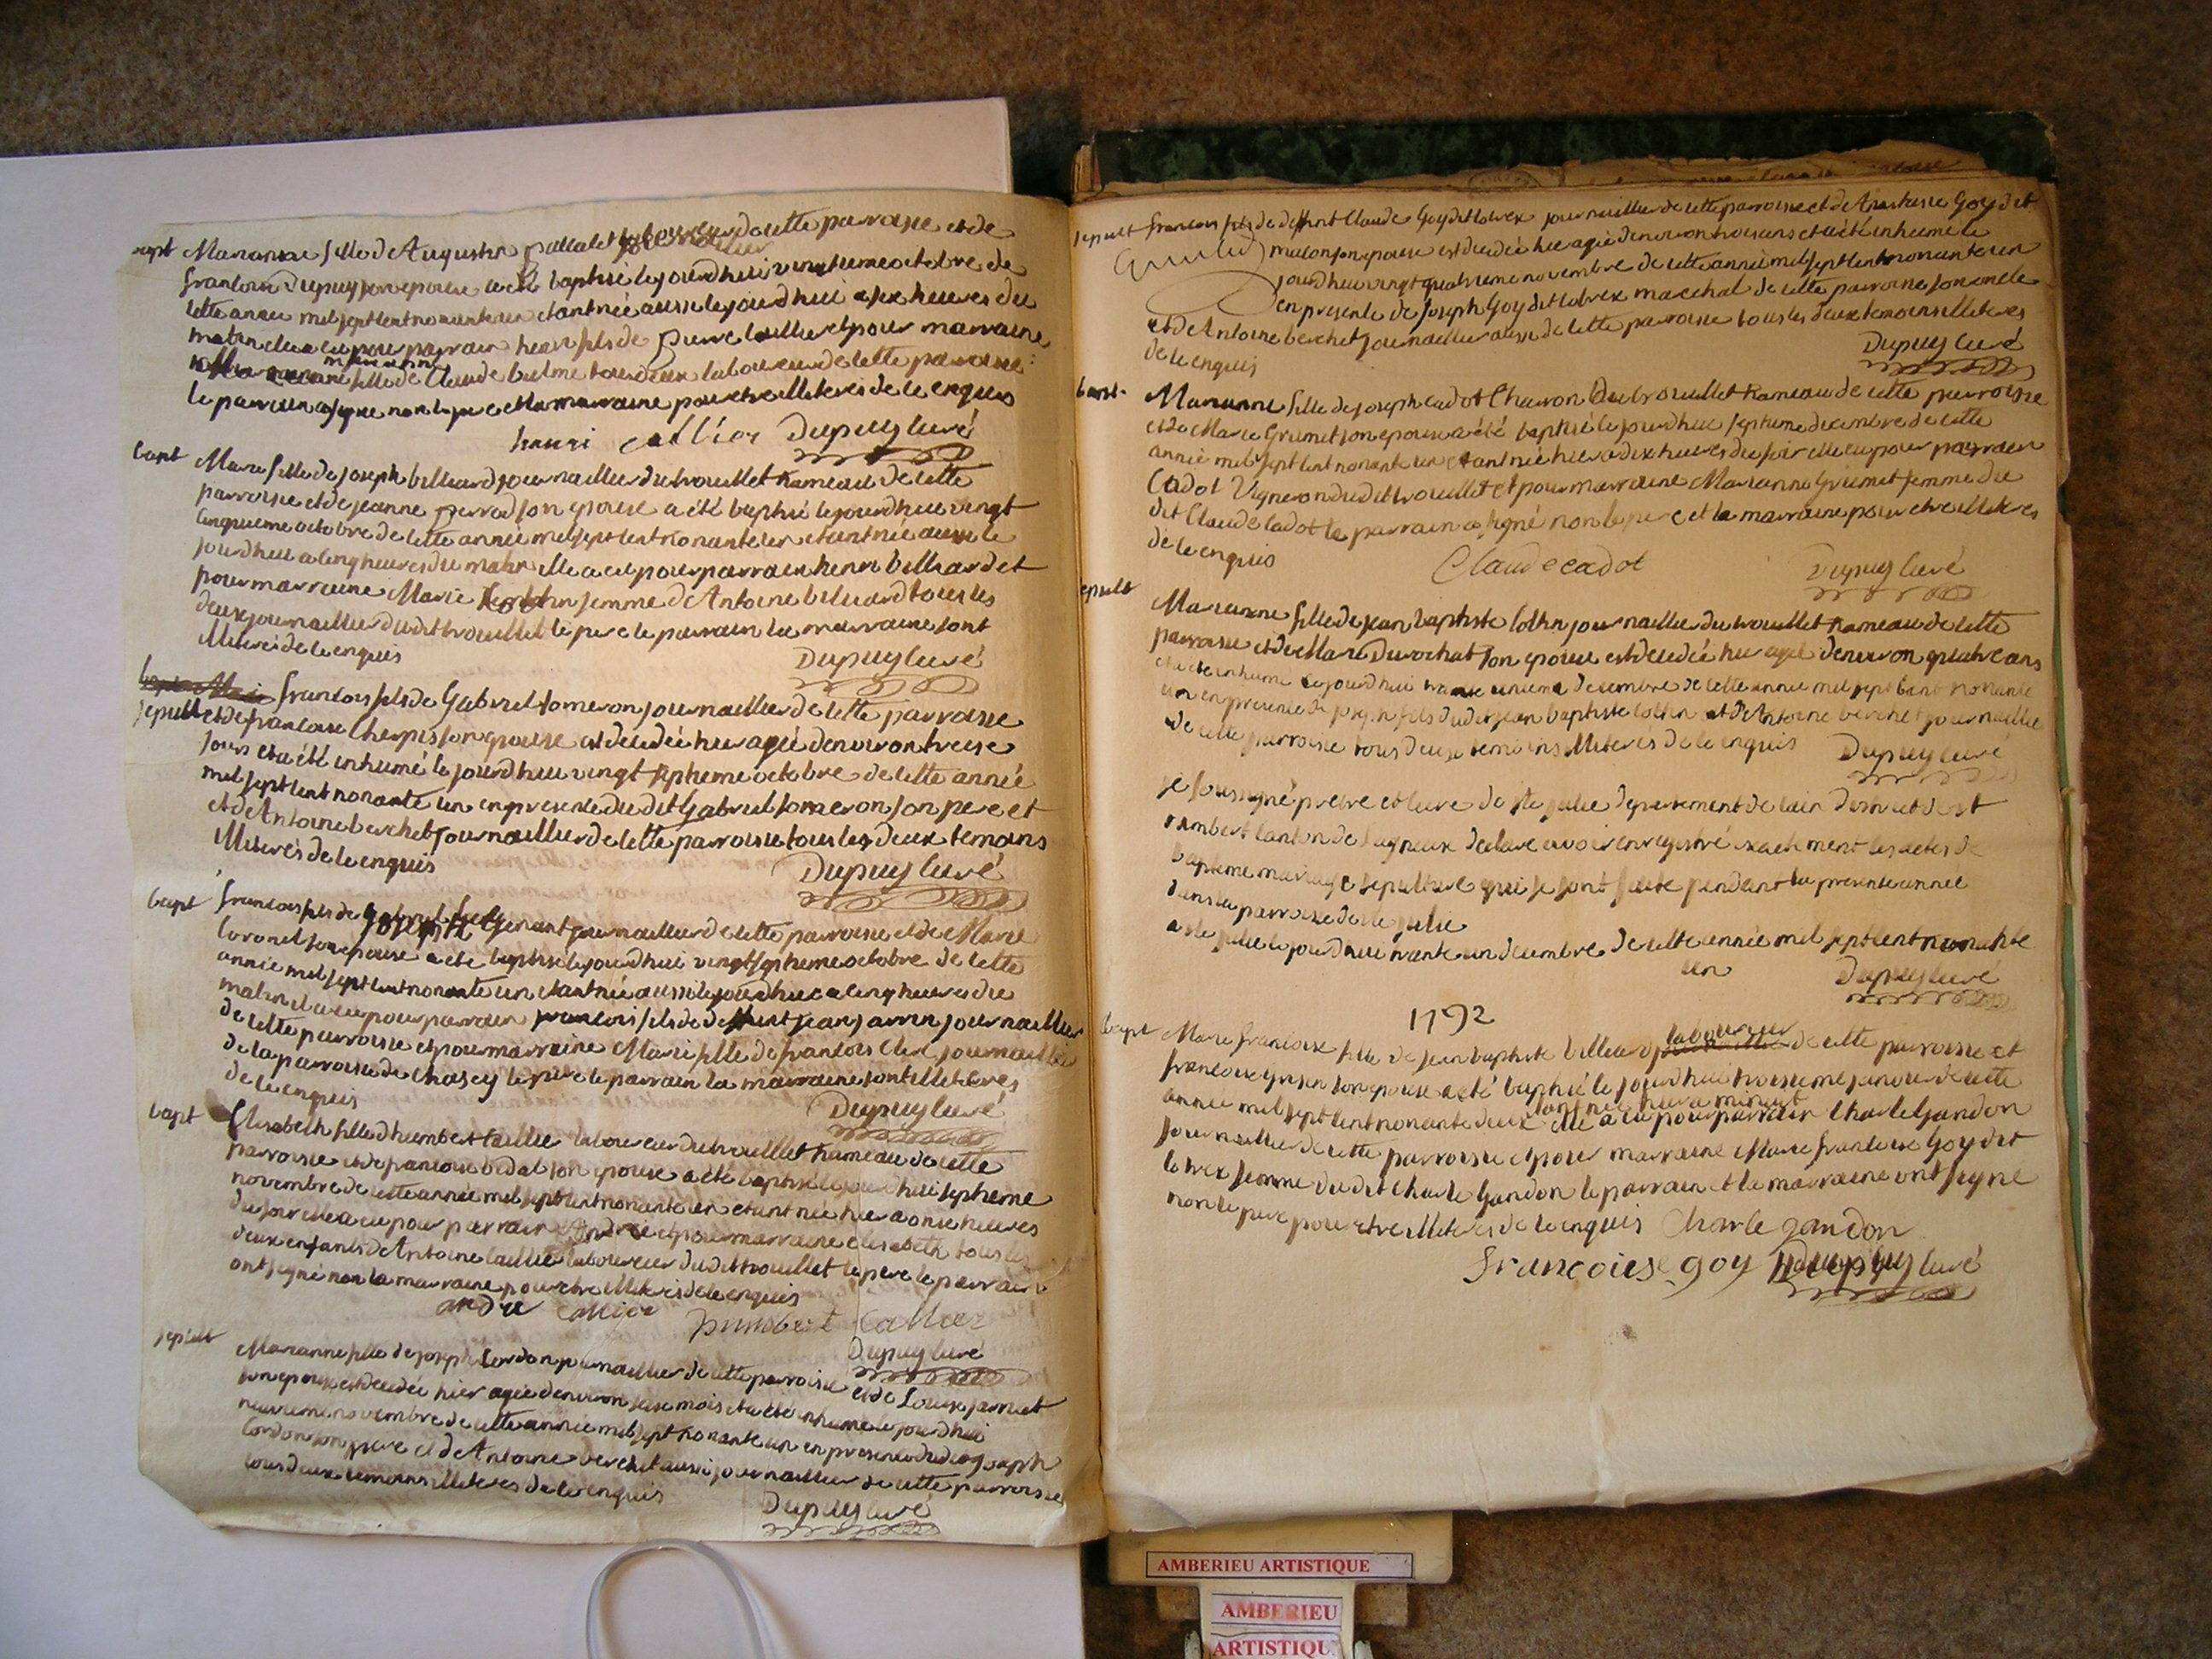 bapt Marianne fille de Augustin pallalet laboureur de cette parroisse et de
francoise Dupuy son epouse a été baptisé le jourdhui vingtieme octobre de
cette annee mil sept cent nonante un etant née aussi le jourdhui a six heures du
matin elle a eu pour parrain henri fils de pierre callier et pour marraine
fille de Claude belme tous deux laboureur de cette parroisse
le parrain a signe non le pere et la marraine pour etre illiteres de ce enquis
henri callier Dupuy curé
bapt Marie fille de joseph billiard journaillier du trouillet hameau de cette
parroisse et de jeanne pervod son epouse a été baptisé le jourdhui vingt
cinquieme octobre de cette année mil sept cent nonante un etant née aussi le
jourdhui a cinq heures du matin elle a eu pour parrain henri billiard et
pour marraine Marie femme d'Antoine billiard tous les
deux journaillier du dit trouillet le pere le parrain la marraine sont
illiteres de ce enquis
Dupuy curé
sepult francois fils de Gabriel someron journaillier de cette parroisse
et de francoise Cherpis son epouse est decedée hier agée denviron treise
jours et a été inhumé le jourdhui vingt septieme octobre de cette année
mil sept cent nonante un en presence du dit Gabriel someron son pere et
et de Antoine berchet journaillier de cette parroisse tous les deux temoins
illiterés de ce enquis
Dupuy curé
bapt francois fils de joseph journaillier de cette parroisse et de Marie
Coronel son epouse a été baptisé le jourdhui vingt septieme octobre de cette
année mil sept cent nonante un etant née aussi le jourdhui a cinq heures du
matin il a eu pour parrain francois fils de deffunt jean javrin journaillier
de cette parroisse et pour marraine Marie fille de francois Clerc journaillier
de la parroisse de Chasey le pere le parrain la marraine sont illiteres
de ce enquis
Dupuy curé
bapt Elisabeth fille d'humbert callier laboureur du trouillet hameau de cette
parroisse et de francoise bidal son epouse a été baptisé le jourdhui septieme
novembre de cette année mil sept cent nonante un etant née hier a onse heures
du soir elle a eu pour parrain André et pour marraine elisabeth tous les
deux enfants de Antoine callier laboureur du dit trouillet le pere le parrain
ont signé non la marraine pour etre illiteres de ce enquis
andre callier humbert callier
Dupuy curé
sepult Marianne fille de joseph Cordon journaillier de cette parroisse et de Louise jannet
son epouse est decedée hier agée denviron seise mois et a été inhumé le jourdhui
neuvieme novembre de cette année mil sept nonante un en presence du dit joseph
Cordon son pere et d'Antoine berchet aussi journaillier de cette parroisse
tous deux temoins illiteres de ce enquis
Dupuy curé
sepult francois fils de deffunt Claude Goy dit lovex journaillier de cette parroisse et de Anastasie Goy dit
mulon son epouse est decedée hier agée denviron trois ans et a été inhumé le
jourdhui vingt quatrieme novembre de cette année mil sept cent nonante un
en presence de joseph Goy dit lovrex marechal de cette parroisse son oncle
et de Antoine berchet journaillier aussi de cette parroisse tous les deux temoins illiteres
de ce enquis
Dupuy curé
bapt Marianne fille de joseph cadot Charon du trouillet hameau de cette parroisse
et de Marie Grumet son epouse a été baptisé le jourdhui septieme decembre de cette
année mil sept cent nonante un etant née hier a dix heures du soir elle eu pour parrain
Cadot Vigneron du dit trouillet et pour marraine Marianne Grumet femme du
dit Claude Cadot le parrain a signé non le pere et la marraine pour etre illiteres
de ce enquis
Claude cadot Dupuy curé
epult Marianne fille de jean baptiste Cottin journaillier du trouillet hameau de cette
parroisse et de Marie Durochat son epouse est decedée hier agée denviron quatre ans
et a été inhumé le jourdhui trante unieme decembre de cette année mil sept cent nonante
un en presence de joseph fils du dit jean baptiste Cottin et d'Antoine berchet journaillier
de cette parroisse tous deux temoins illiteres de ce enquis Dupuy curé
je soussigné pretre et curé de ste julie departement de lain district de st
rambert canton de lagneux declare avoir enregistré exactement les actes de
bapteme mariage sepulture qui se sont faite pendant la presente année
dans la parroisse de ste julie
a ste julie le jourdhui trante un decembre de cette année mil sept cent nonante
un
Dupuy curé
1792
bapt Marie francoise fille de jean baptiste billiard laboureur de cette parroisse et
francoise son epouse a été baptisé le jourdhui troisieme janvier de cette
année mil sept cent nonante deux etant née hier a minuit elle a eu pour parrain Charle Gandon
journaillier de cette parroisse et pour marraine Marie francoise Goy dit
lovrex femme du dit Charle Gandon le parrain et la marraine ont signe
non le pere pour etre illiteres de ce enquis Charle gandon
françoise goy Dupuy curé
AMBERIEU ARTISTIQUE
AMBERIEU
ARTISTIQU